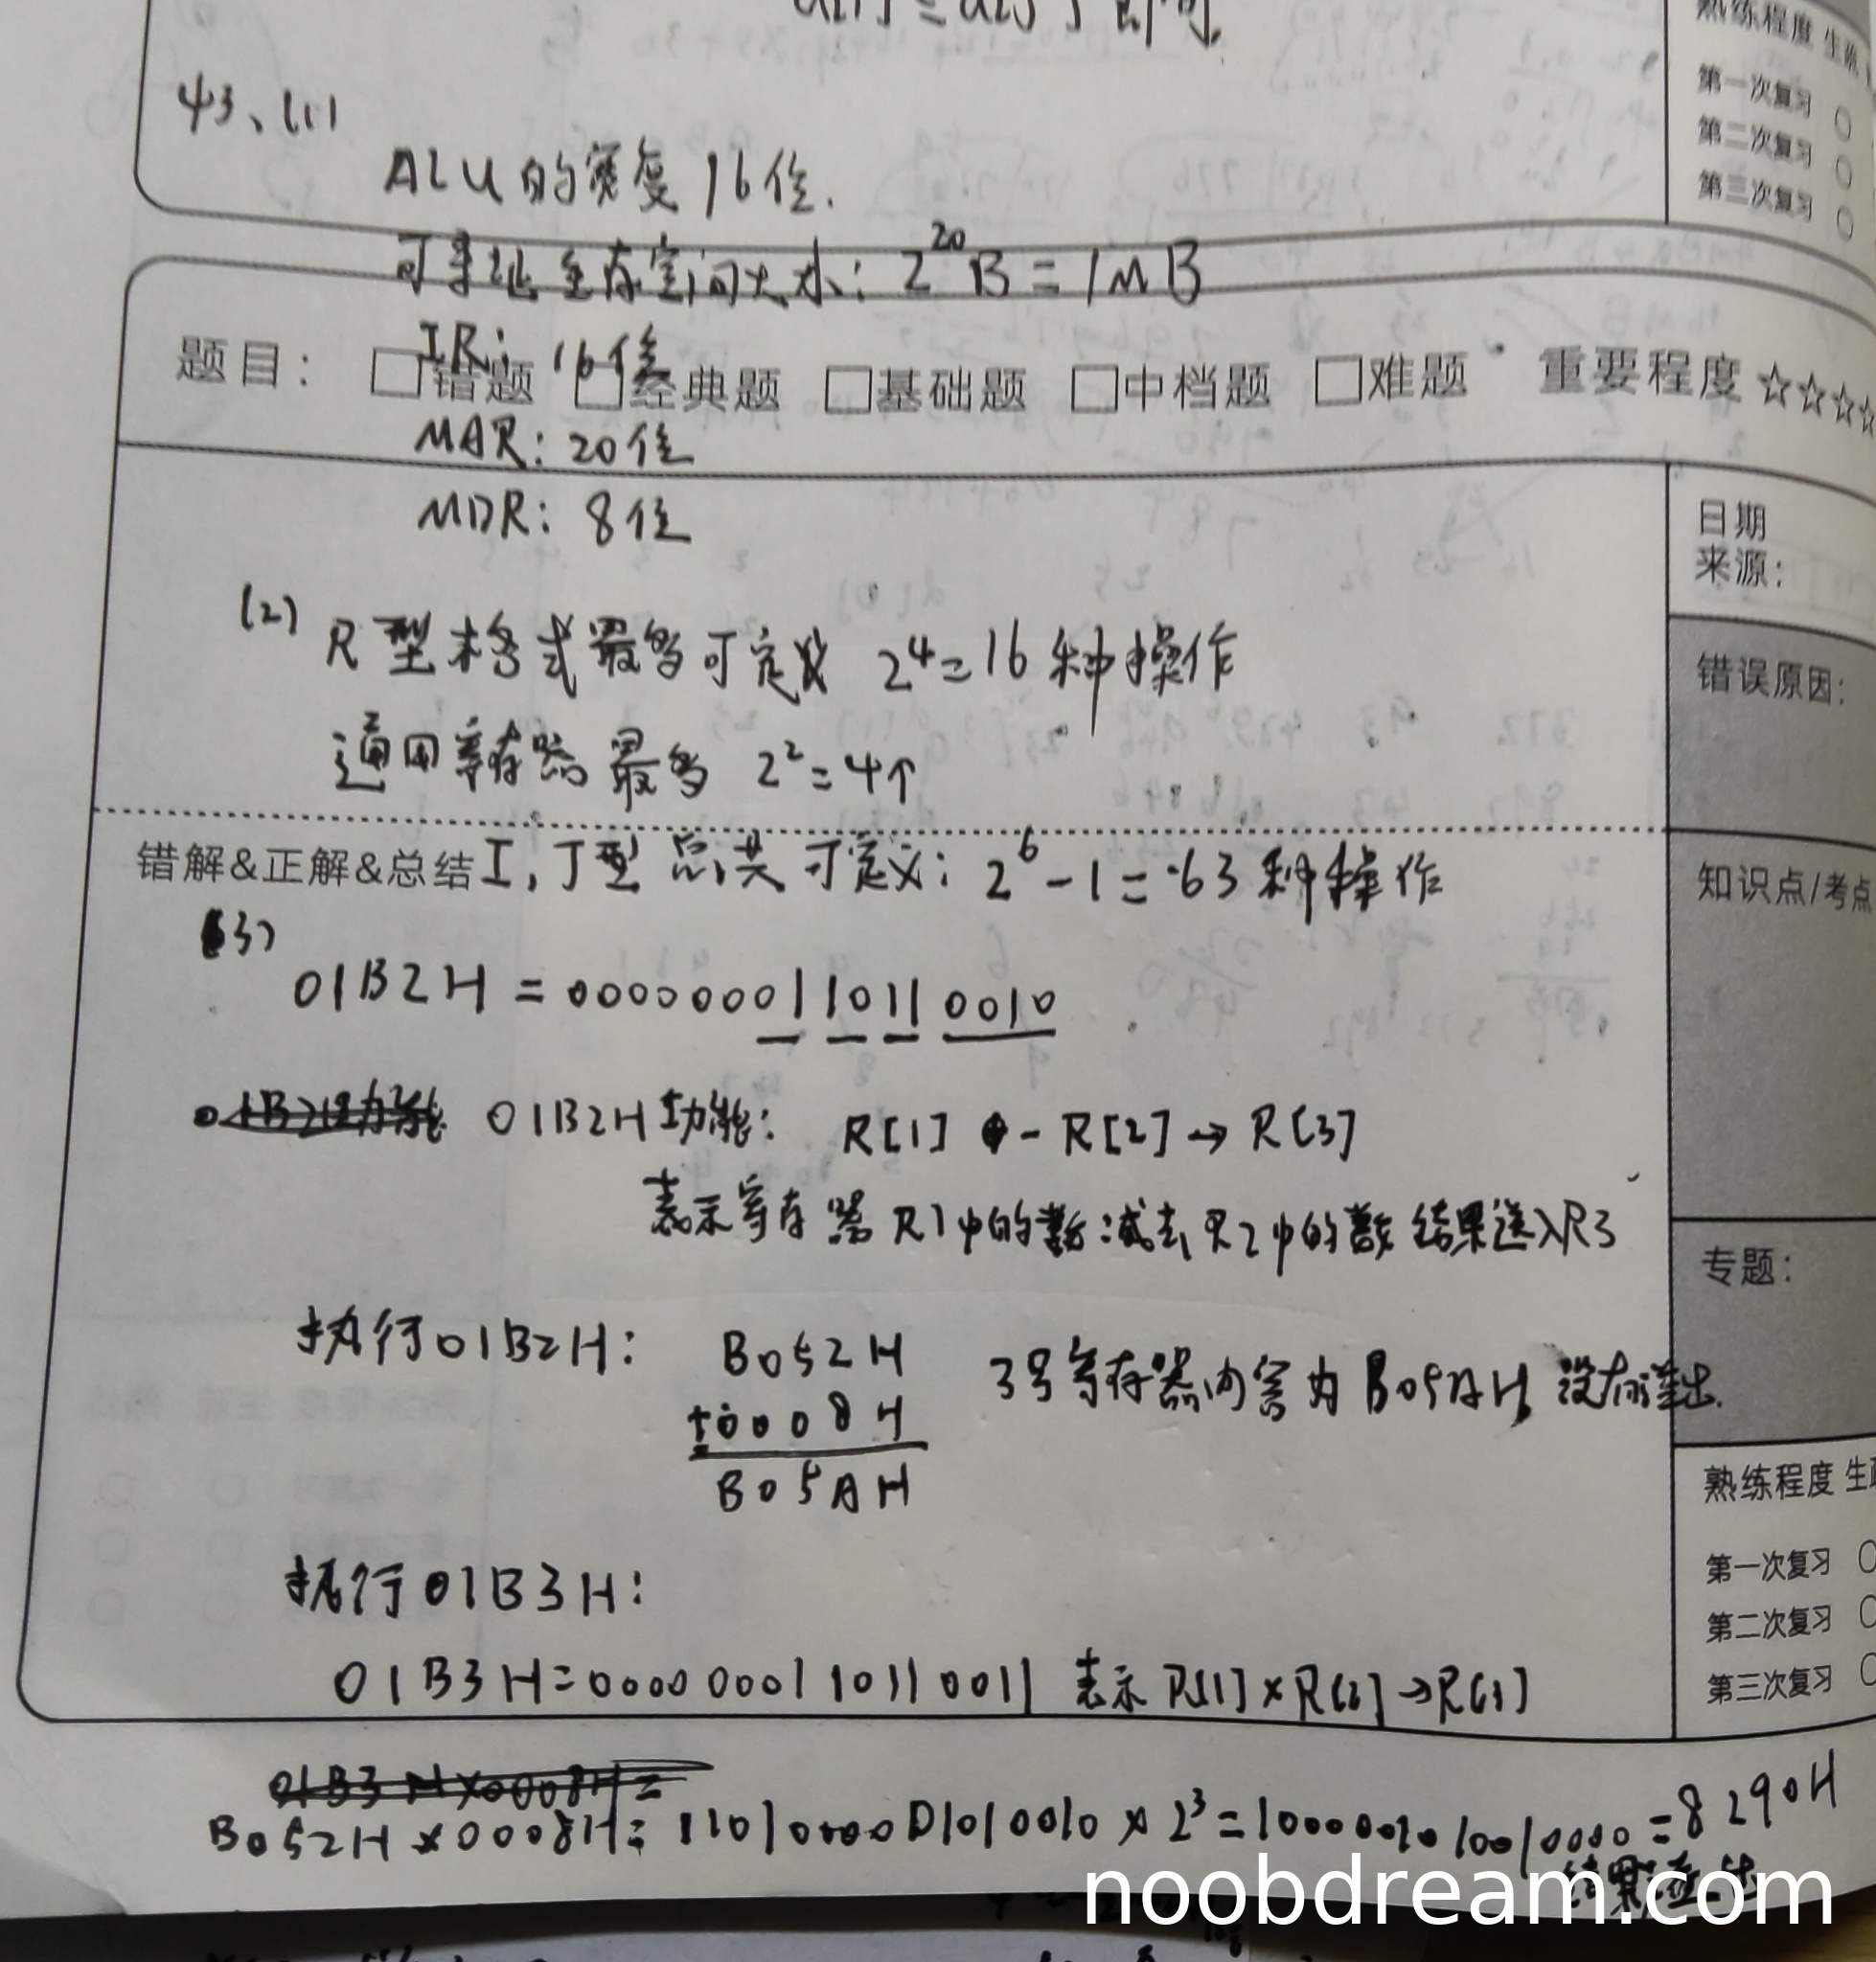 熟练程度 生疏
第一次复习
第二次复习
第三次复习
43、(1)
ALU的宽度16位.
可寻址主存空间大小: 2^20 B = 1MB
IR: 16位
题目: □错题 □经典题 □基础题 □中档题 □难题 重要程度 ☆☆☆☆
MAR: 20位
MDR: 8位
日期
来源:
(2) R型格式最多可定义 2^4=16 种操作
错误原因:
通用寄存器最多 2^2=4个
错解&正解&总结 I, J型 总共 可定义: 2^6-1=63 种操作
知识点/考点
(3)
01B2H = 0000000110110010
01B2H功能: R[1] - R[2] → R[3]
表示寄存器R1中的数减去R2中的数结果送入R3
专题:
执行01B2H: B052H 3号寄存器内容为B05AH, 没有溢出.
+0008H
B05AH
熟练程度 生疏
执行01B3H:
第一次复习
第二次复习
第三次复习
01B3H=0000000110110011 表示 R[1]×R[2]→R[3]
01B3H×0008H=
B052H×0008H= 1101000001010010 × 2^3 = 1000001010010000 = 8290H
结果溢出
noobdream.com